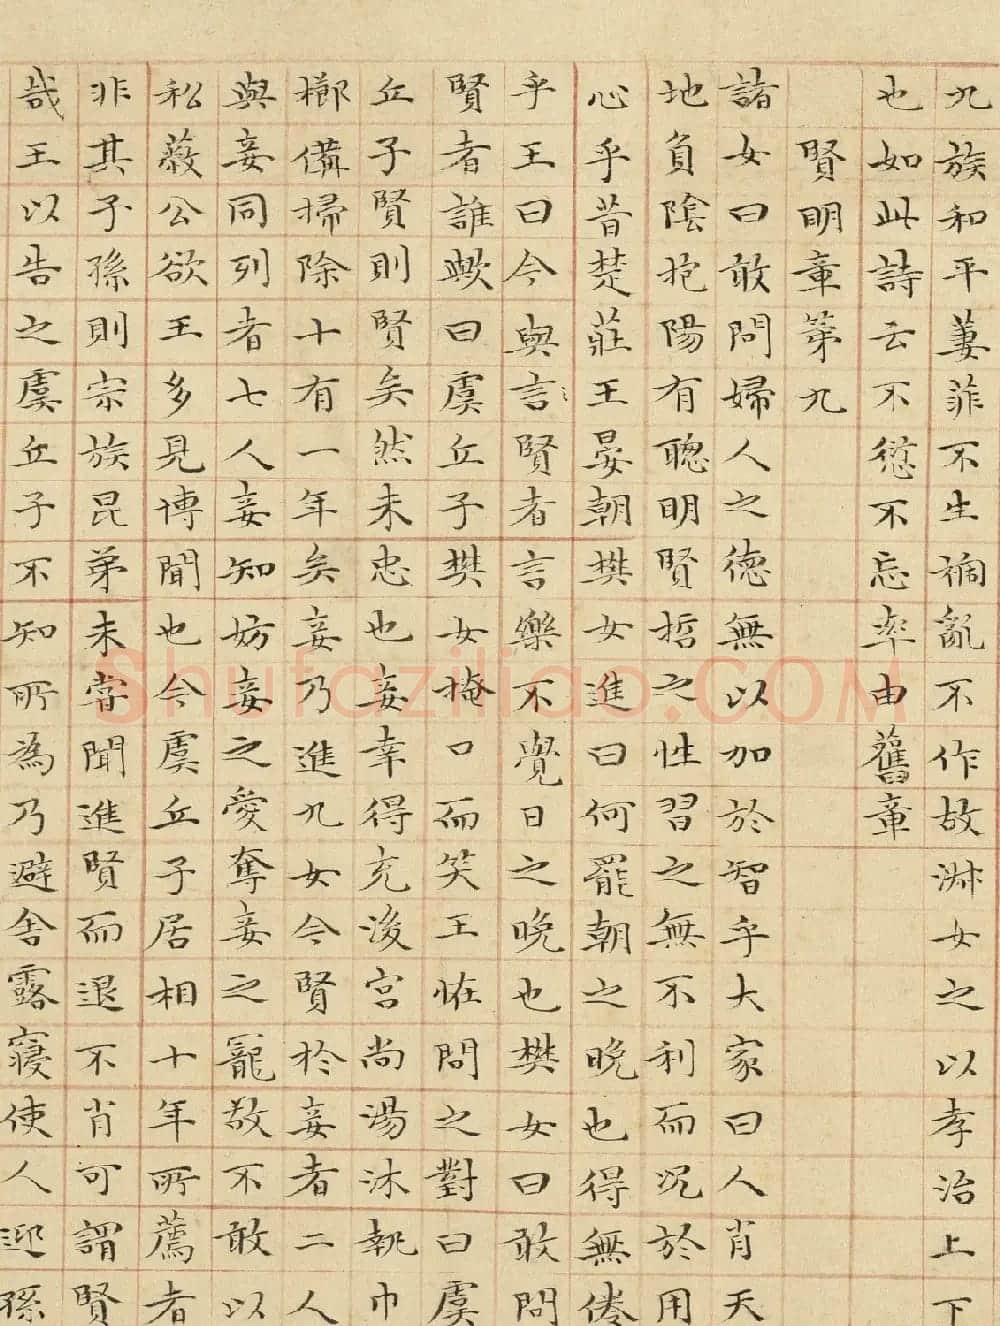 九族和平萋菲不生禍亂不作故淋女之以孝治上下
也如此詩云不愆不忘率由舊章
賢明章第九
諸女曰敢問婦人之德無以加於智乎大家曰人肖天
地負陰抱陽有聰明賢哲之性習之無不利而況於用
心乎昔楚莊王晏朝樊女進曰何罷朝之晚也得無倦
乎王曰今與言賢者言樂不覺日之晚也樊女曰敢問
賢者誰歟曰虞丘子樊女掩口而笑王怪問之對曰虞
丘子賢則賢矣然未忠也妾幸得充後宮尚湯沐執巾
櫛備掃除十有一年矣妾乃進九女今賢於妾者二人
與妾同列者七人妾知妨妾之愛奪妾之寵敢不敢以
私蔽公欲王多見博聞也今虞丘子居相十年所薦者
非其子孫則宗族昆弟未嘗聞進賢而退不肖可謂賢
哉王以告之虞丘子不知所為乃避舍露寢使人迎孫
Shufaziliao.COM